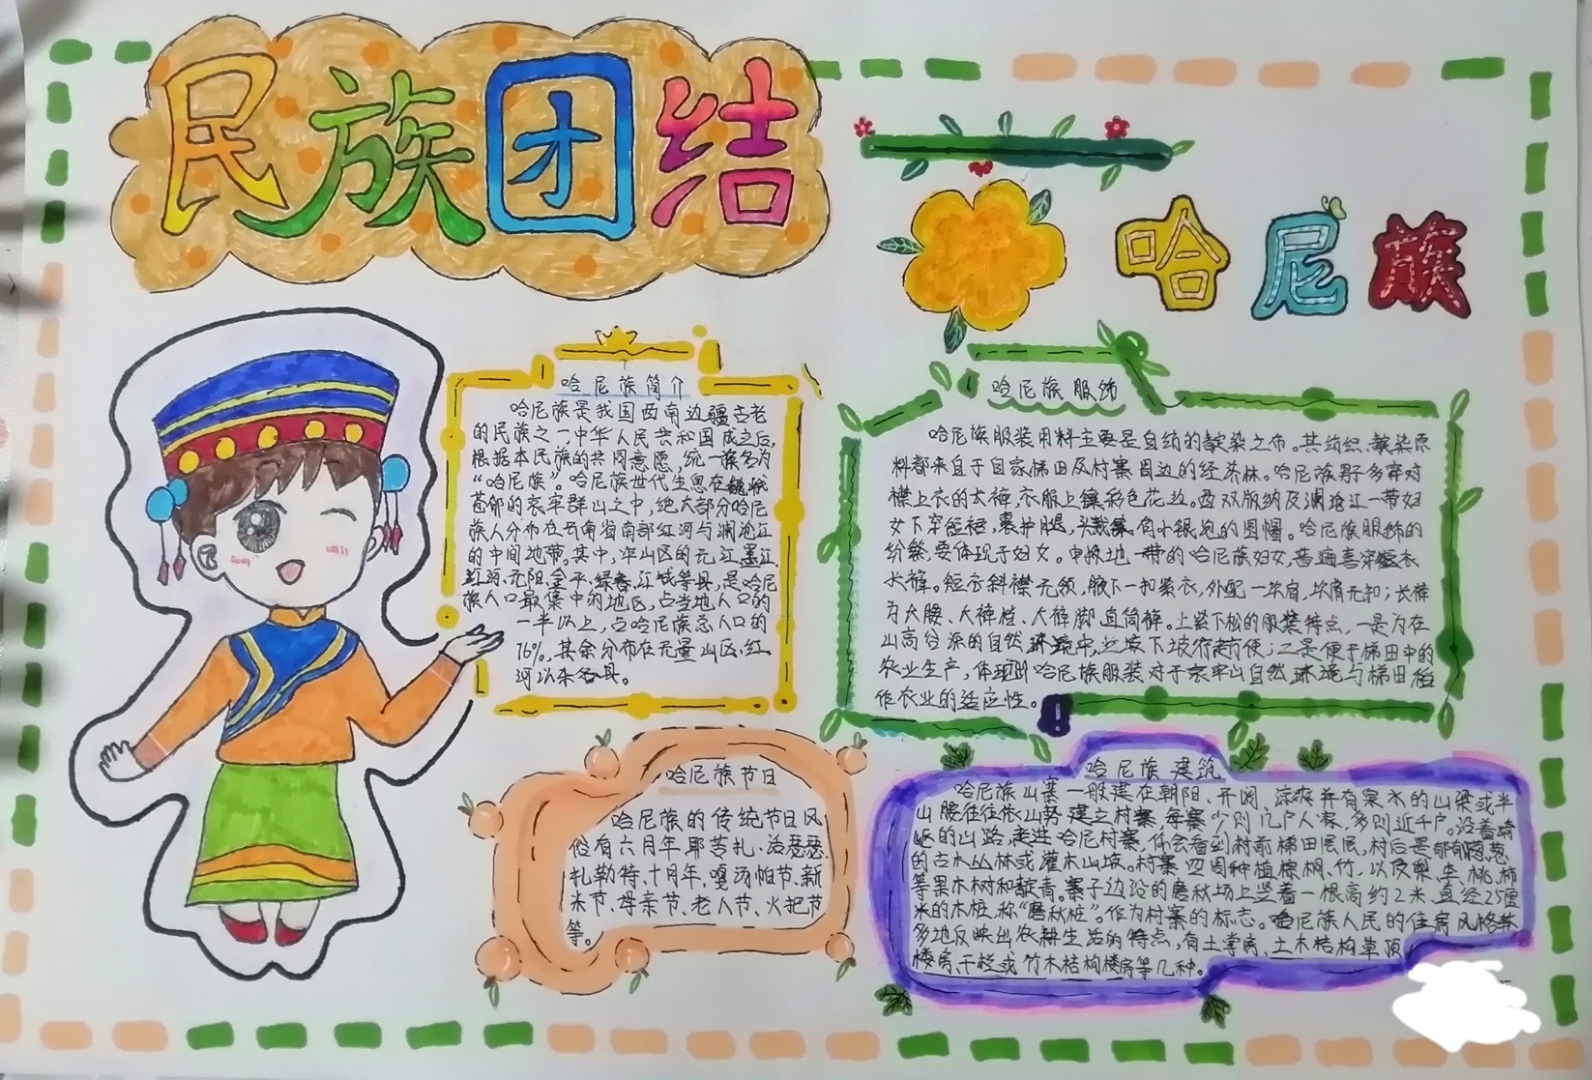 民族团结
哈尼族
哈尼族简介
哈尼族是我国西南边疆古老
的民族之一,中华人民共和国成立后,
根据本民族的共同意愿,统一族名为
“哈尼族”。哈尼族世代生息在巍峨
葱郁的哀牢群山之中,绝大部分哈尼
族人分布在云南省南部红河与澜沧江
的中间地带。其中,哀牢山区的元江、墨江、
红河、元阳、金平、绿春、江城等县,是哈尼
族人口最集中的地区,占当地人口的
一半以上,占哈尼族总人口的
76%,其余分布在无量山区、红
河以东各县。
哈尼族服饰
哈尼族服装用料主要是自纺的靛染之布。其纺织、靛染原
料都来自于自家梯田及村寨周边的经济林。哈尼族男子多穿对
襟上衣的长裤,衣服上镶彩色花边。西双版纳及澜沧江一带妇
女下穿短裙,裹护腿,头戴镶有小银泡的圆帽。哈尼族服饰的
纷繁,要体现于妇女。中操地一带的哈尼族妇女,普遍喜穿短衣
长裤。短衣斜襟无领,腋下一扣紧衣,外配一坎肩,坎肩无扣;长裤
为大腰、大裤裆、大裤脚、直筒裤。上紧下松的服装特点,一是为在
山高谷深的自然环境中,上坡下坡行走方便;二是便于梯田中的
农业生产,体现出哈尼族服装对于哀牢山自然环境与梯田稻
作农业的适应性。
哈尼族节日
哈尼族的传统节日风
俗有六月年、耶苦扎、
扎勒特、十月年、嘎汤帕节、新
米节、母亲节、老人节、火把节
等。
哈尼族建筑
哈尼族山寨一般建在朝阳、开阔、凉爽并有泉水的山梁或半
山腰往往依山势建立村寨,每寨少则几户人家,多则近千户。沿着崎
岖的山路,走进哈尼村寨,你会看到村前梯田层层,村后是郁郁葱葱
的古木丛林或灌木山坡。村寨四周种植棕榈、竹,以及梨、李、桃、柿
等果木树和靛青。寨子边沿的磨秋场上竖着一根高约2米,直径25厘
米的木桩,称“磨秋桩”。作为村寨的标志。哈尼族人民的住房风格较
多地反映出农耕生活的特点,有土掌房、土木结构草顶
楼房、干栏或竹木结构楼房等几种。